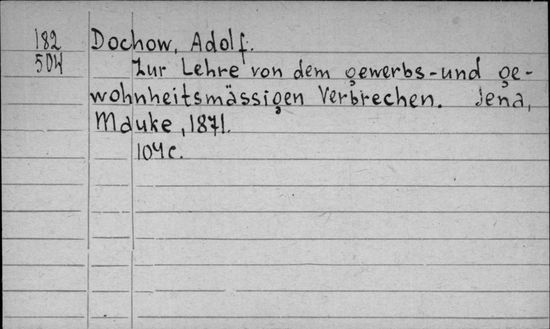 182 Dochow, Adolf.
504 Zur Lehre von dem gewerbs-und ge-
wohnheitsmässigen Verbrechen. Jena,
Mauke, 1871.
104 c.